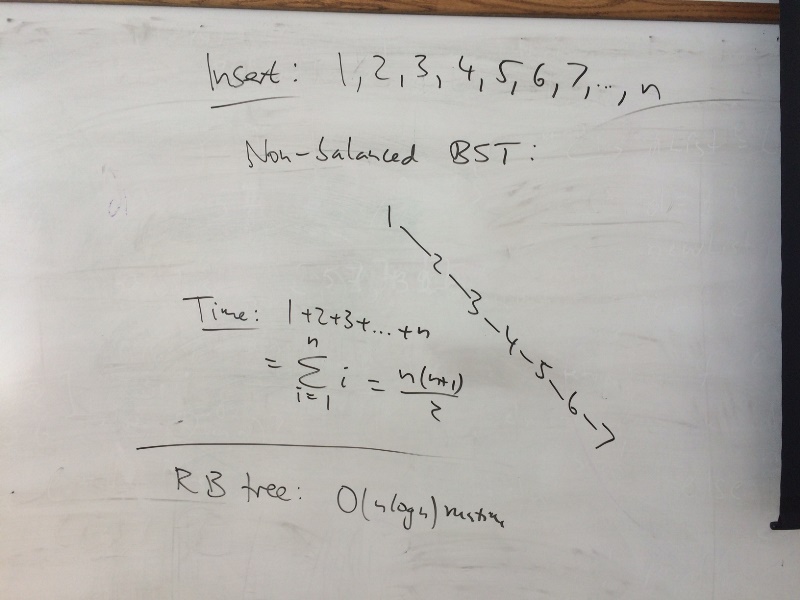 Insert: 1, 2, 3, 4, 5, 6, 7, ..., n
Non-balanced BST:
1
2
3
4
5
6
7
Time: 1+2+3+...+n
= n∑i=1 i = n(n+1)/2
RB tree: O(n log n) runtime